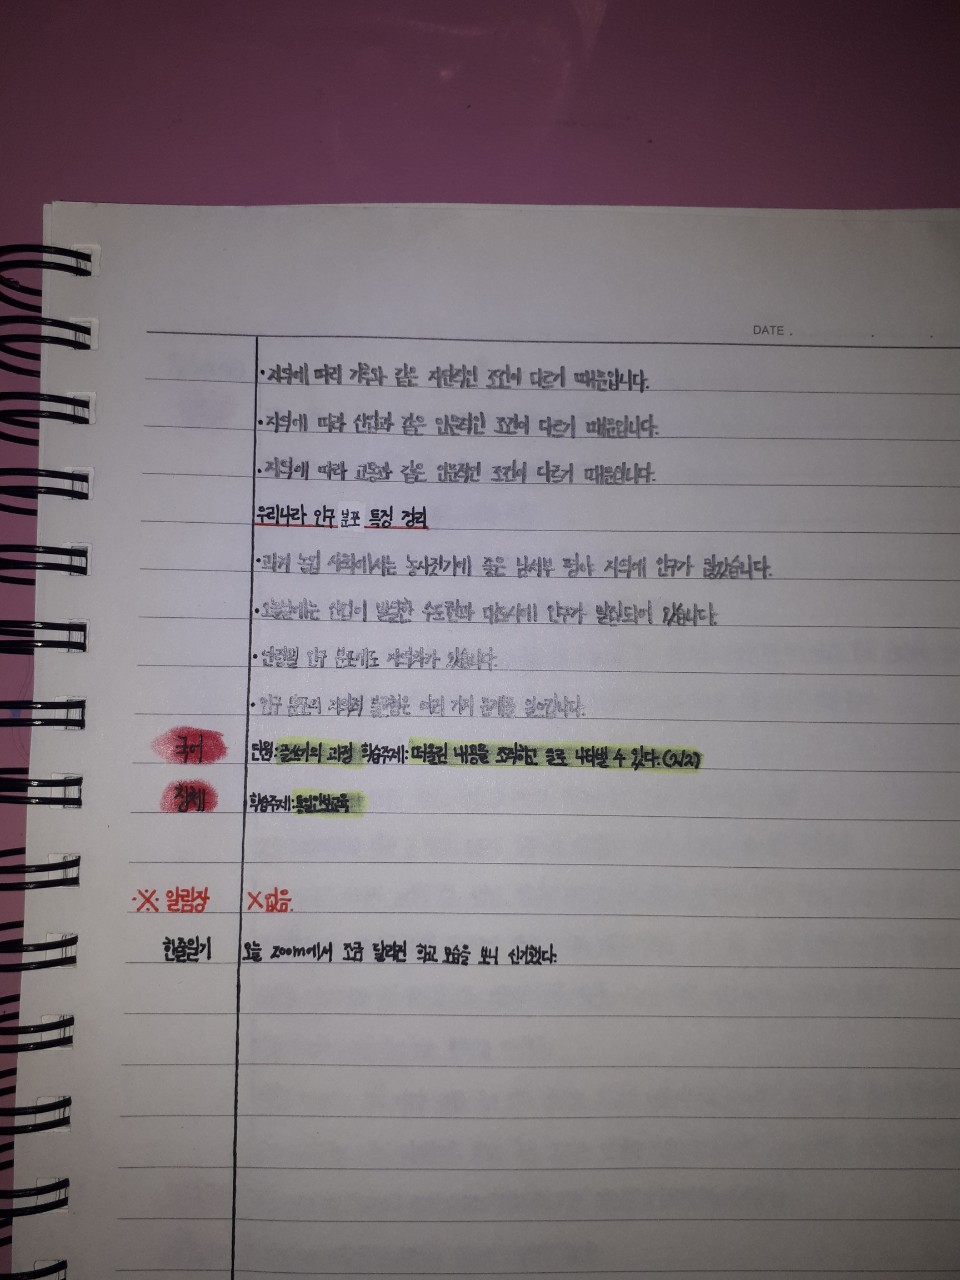 DATE . . .
· 지역에 따라 기후와 같은 자연적인 조건이 다르기 때문입니다.
· 지역에 따라 산업과 같은 인문적인 조건이 다르기 때문입니다.
· 지역에 따라 교통과 같은 인문적인 조건이 다르기 때문입니다.
우리나라 인구 분포 특징 정리
· 과거 농업 사회에서는 농사짓기에 좋은 남서부 평야 지역에 인구가 많았습니다.
· 오늘날에는 산업이 발달한 수도권과 대도시에 인구가 밀집되어 있습니다.
· 연령별 인구 분포에도 지역차가 있습니다.
· 인구 분포의 지역적 불균형은 여러 가지 문제를 일으킵니다.
국어 단원: 글쓰기의 과정 학습주제: 떠올린 내용을 조직하고 글로 나타낼 수 있다. (2/2)
창체 학습주제: 통일안보교육
※ 알림장 X없음.
한줄일기 오늘 zoom에서 조금 달라진 학교 모습을 보니 신기했다.